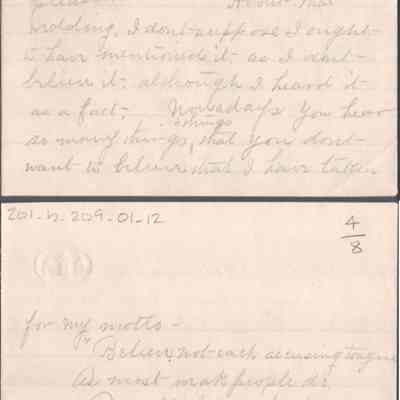 please. About that
wedding, I dont suppose I ought
to have mentioned it, as I dont
believe it, although I heard it
as a fact,- Nowadays you hear
things
so many things, that you dont
want to believe that I have taken
201-h-209-01-12
4/8
for my motto -
"Believe not each accusing tongue
As most weak people do.